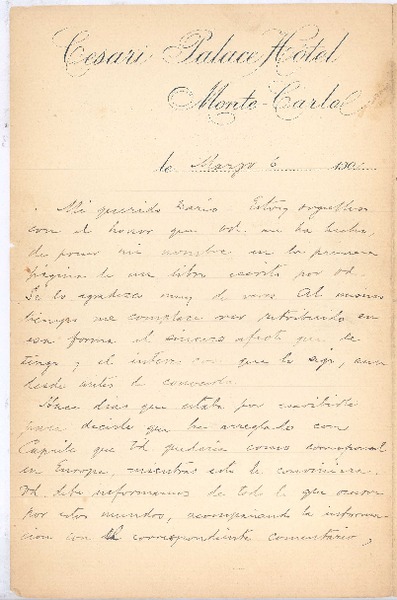 Cesari Palace Hotel
Monte-Carlo
le Marzo 6 190
Mi querido Darío Estoy orgulloso
con el honor que Ud. me ha hecho,
de poner mi nombre en la primera
página de un libro escrito por Ud.
Se lo agradezco muy de veras. Al mismo
tiempo me complace ver retribuido en
esa forma el sincero afecto que le
tengo y el interés con que le sigo, aun
desde antes de conocerlo.
Hace días que estaba por escribirle
para decirle que he arreglado con
que Ud quedaría como corresponsal
en Europa, mientras esto le conviniera.
Ud. debe informarnos de todo lo que ocurra
por estos mundos, acompañando la informa-
cion con el correspondiente comentario,